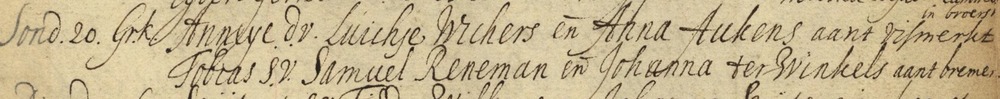 in broerst
Sond. 20. Grk Anneye d.v. Luichje Wichers en̄ Anna Aukens aant vismerkt
Tobias s.v. Samuel Reneman en̄ Johanna ter Winkels aant bremer